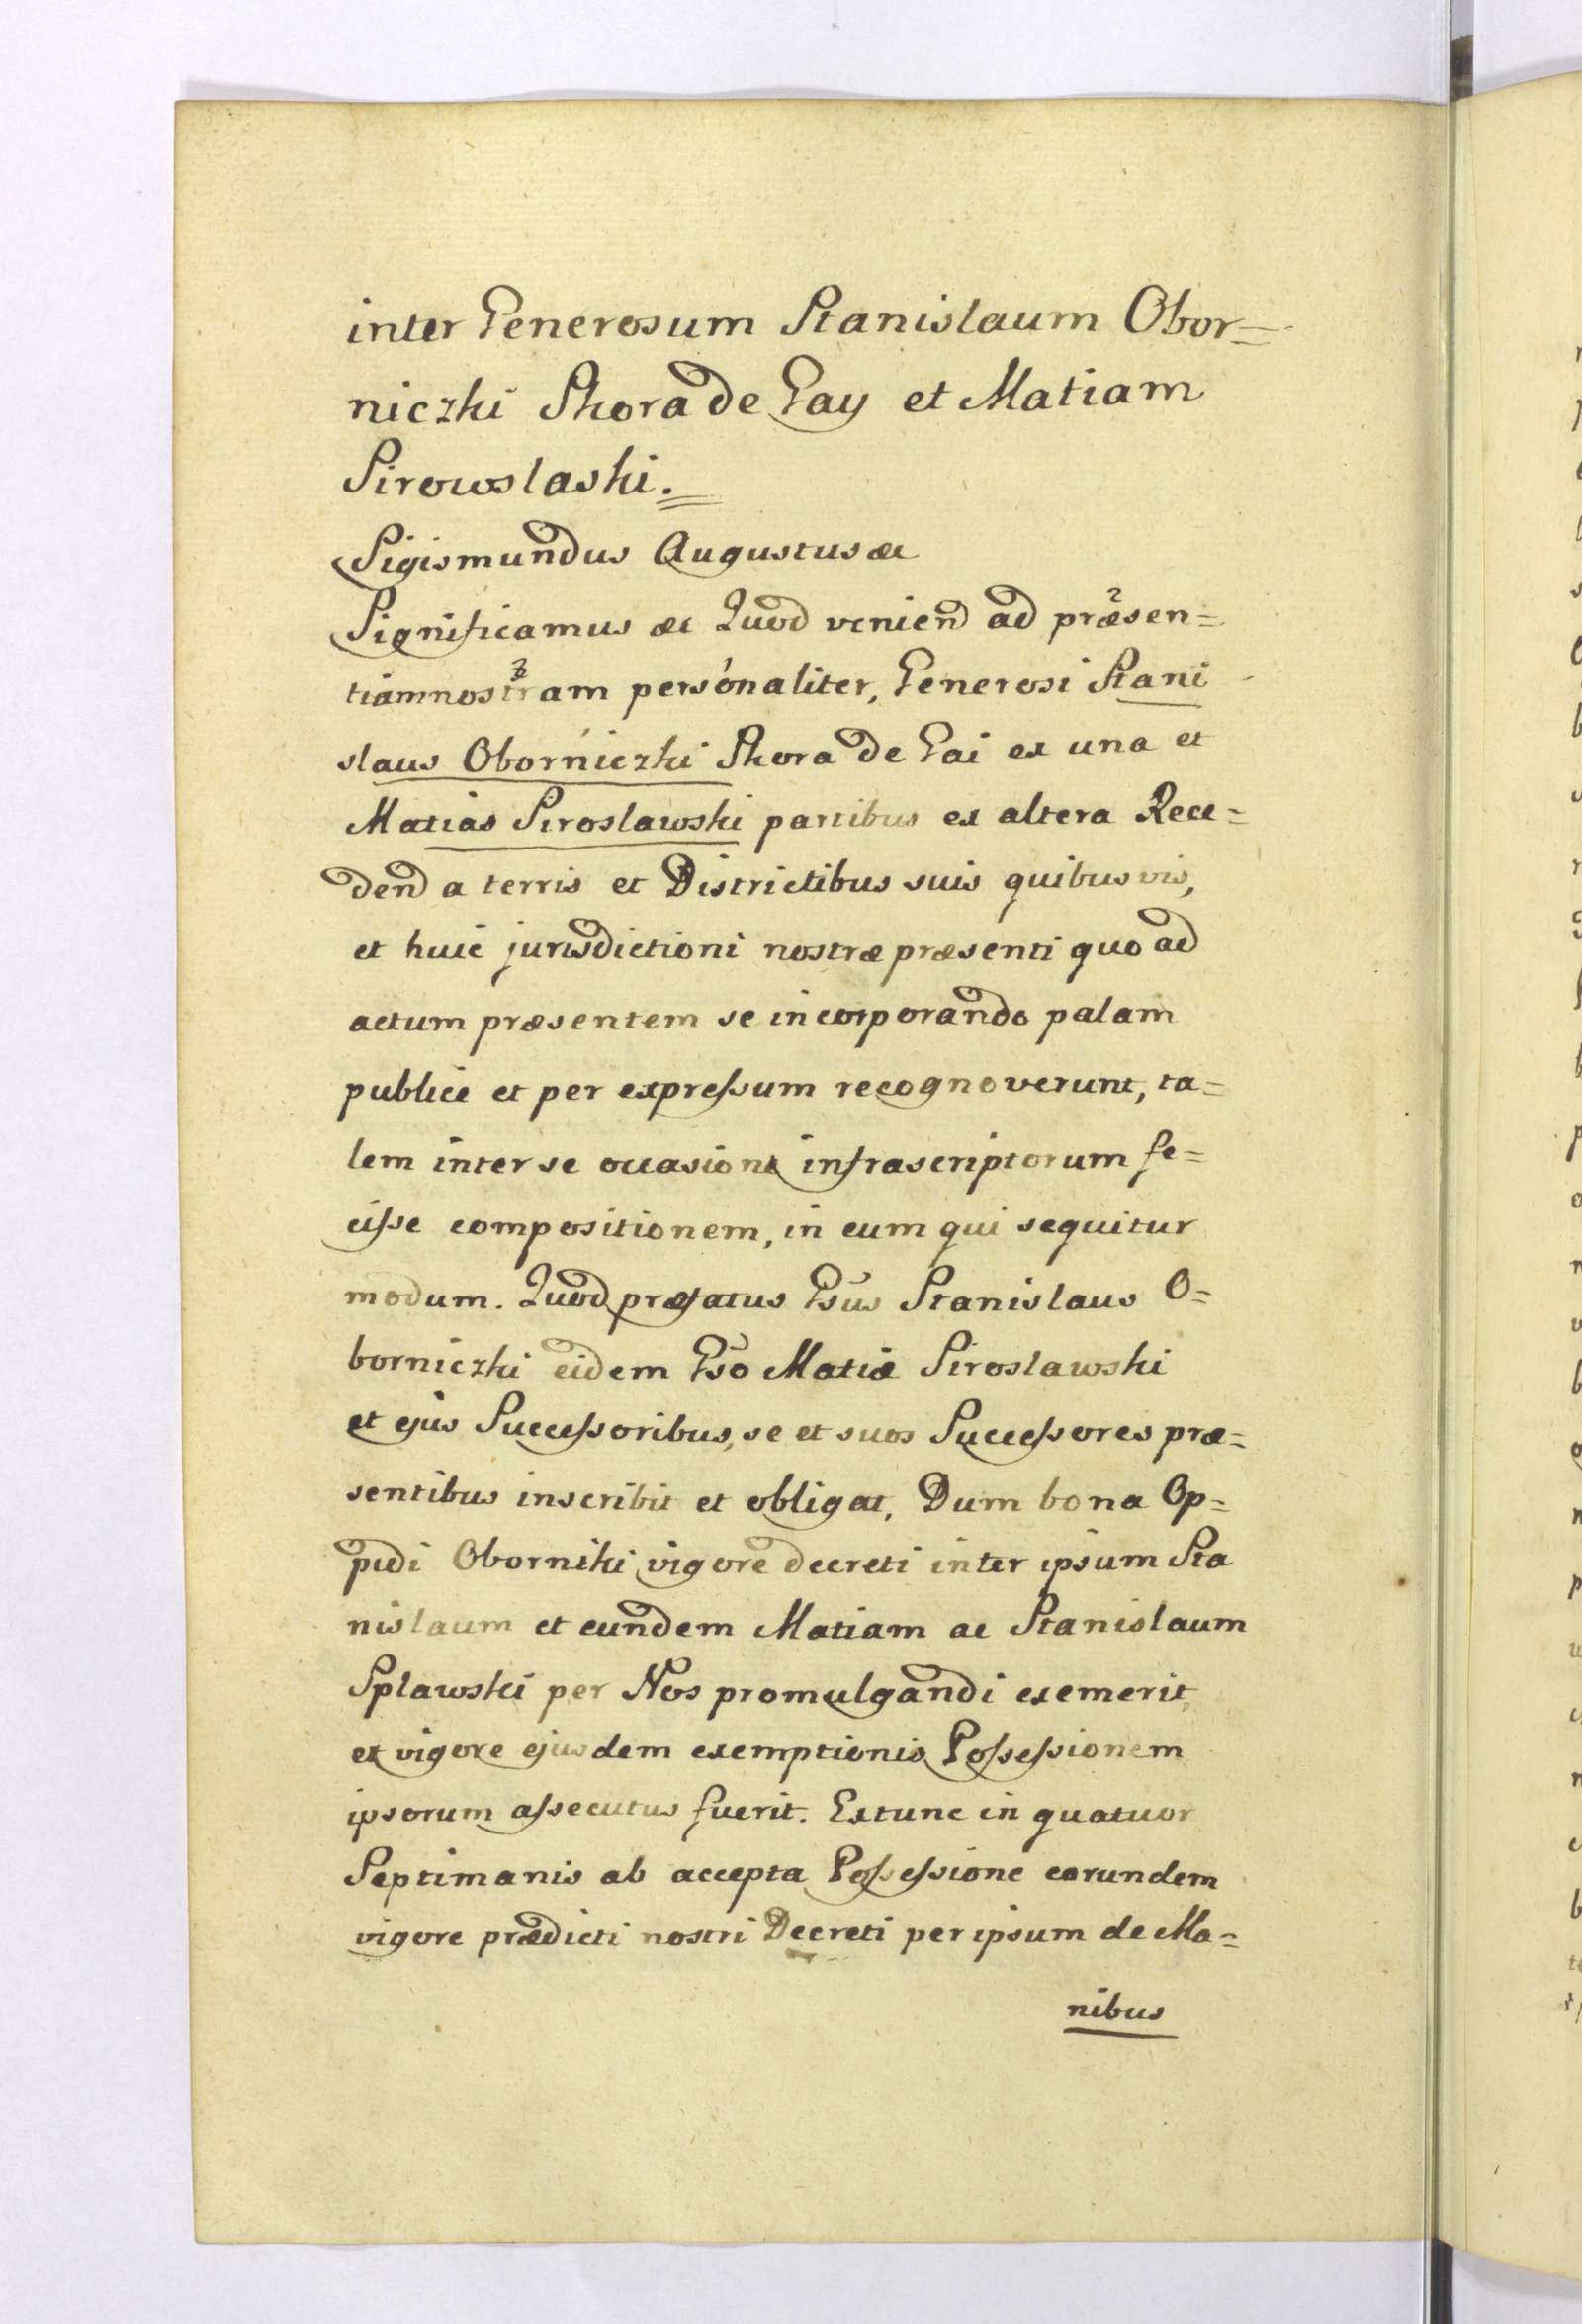 inter Generosum Stanislaum Obor=
niczki Skora de Gay et Matiam
Sirowslaski.
Sigismundus Augustus &c
Significamus &c Quod veniend ad præsen=
tiam nostram personaliter, Generosi Stani
slaus Oborniczki Skora de Gai ex una et
Matias Siroslawski partibus ex altera Rece=
dend a terris et Districtibus suis quibus vis,
et huic jurisdictioni nostræ præsenti quo ad
actum præsentem se incorporando palam
publice et per expressum recognoverunt, ta=
lem inter se occasione infrascriptorum fe=
cisse compositionem, in eum qui sequitur
modum. Quod præfatus Gsūs Stanislaus O=
borniczki eidem Gsō Matiæ Siroslawski
et ejus Successoribus, se et suos Successores præ=
sentibus inscribit et obligat, Dum bona Op=
pidi Oborniki vigore decreti inter ipsum Sta
nislaum et eundem Matiam ac Stanislaum
Splawski per Nos promulgandi exemerit
et vigore ejusdem exemptionis Possessionem
ipsorum assecutus fuerit. Extunc in quatuor
Septimanis ab accepta Possessione eorundem
vigore prædicti nostri Decreti per ipsum de Ma=
nibus